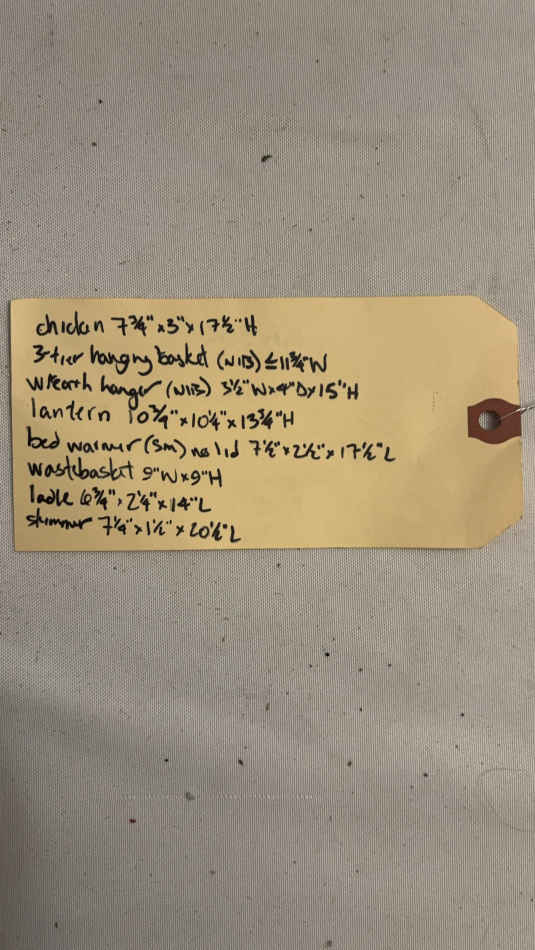 chicken 7¾" x 3" x 17½" H
3-tier hanging basket (NIB) ≤ 11¾" W
wreath hanger (NIB) 3½" W x 4" D x 15" H
lantern 10¾" x 10¼" x 13¾" H
bed warmer (sm) no lid 7½" x 2½" x 17½" L
wastebasket 9" W x 9" H
ladle 6¾" x 2¼" x 14" L
skimmer 7¼" x 1½" x 20½" L